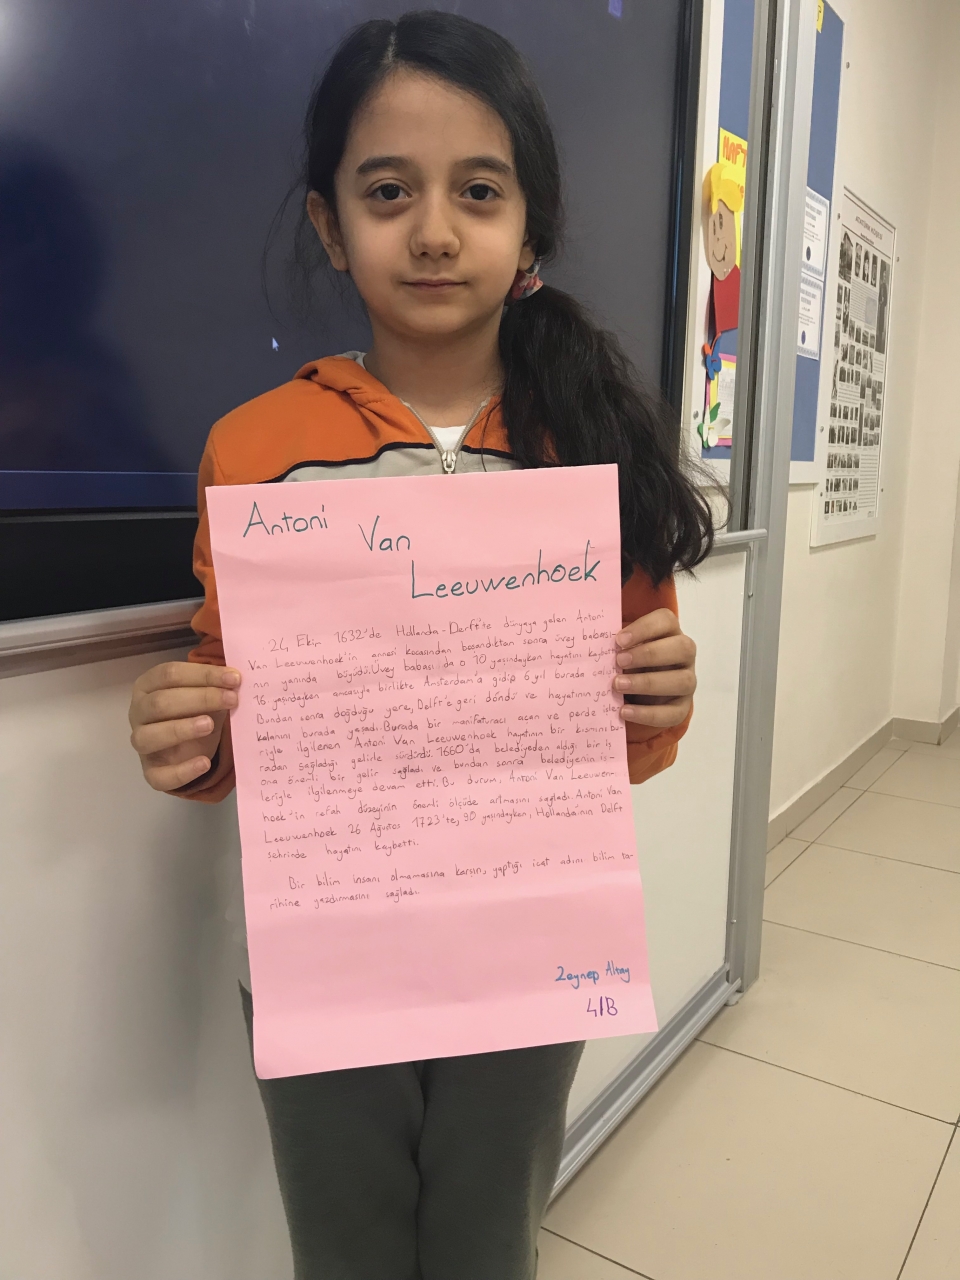 Antoni
Van
Leeuwenhoek
24 Ekim 1632'de Hollanda-Derft'te dünyaya gelen Antoni
Van Leeuwenhoek'in annesi kocasından boşandıktan sonra üvey babası-
nın yanında büyüdü. Üvey babası da o 10 yaşındayken hayatını kaybetti
16 yaşındayken amcasıyla birlikte Amsterdam'a gidip 6 yıl burada çalıştı.
Bundan sonra doğduğu yere, Delft'e geri döndü ve hayatının geri
kalanını burada yaşadı. Burada bir manifaturacı açan ve perde işle-
riyle ilgilenen Antoni Van Leeuwenhoek hayatının bir kısmını bu-
radan sağladığı gelirle sürdürdü. 1660'da belediyeden aldığı bir iş
ona önemli bir gelir sağladı ve bundan sonra belediyenin iş-
leriyle ilgilenmeye devam etti. Bu durum, Antoni Van Leeuwen-
hoek'in refah düzeyinin önemli ölçüde artmasını sağladı. Antoni Van
Leeuwenhoek 26 Ağustos 1723'te, 90 yaşındayken, Hollanda'nın Delft
şehrinde hayatını kaybetti.
Bir bilim insanı olmamasına karşın, yaptığı icat adını bilim ta-
rihine yazdırmasını sağladı.
Zeynep Altay
4/B
HAFT